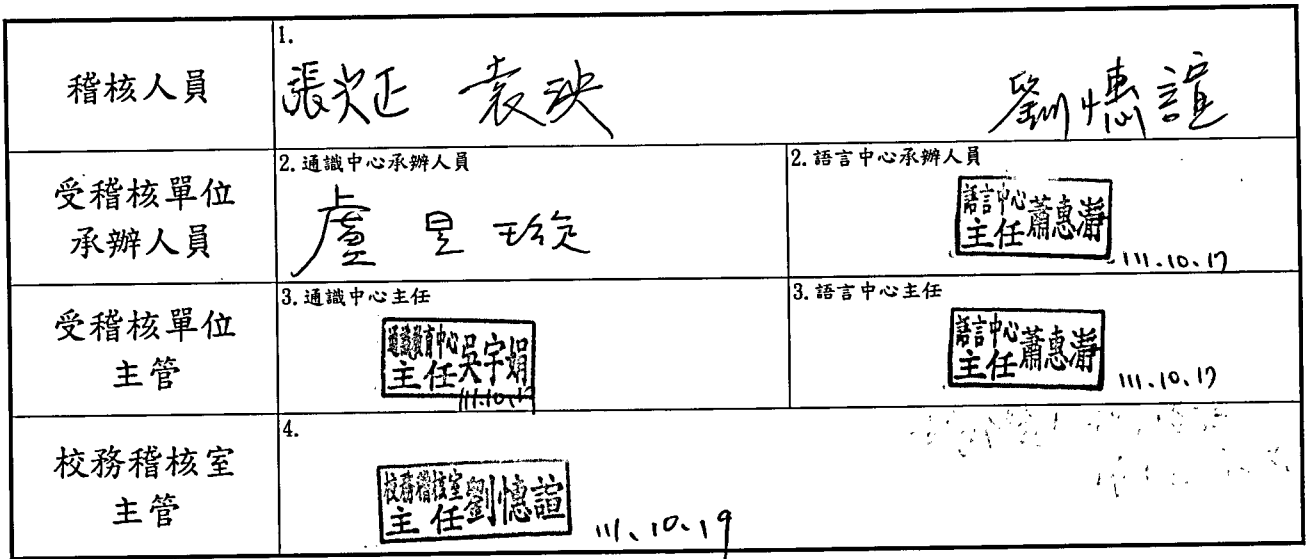 稽核人員
1.
張 正 袁泱 劉憓諠
受稽核單位
承辦人員
2.通識中心承辦人員
盧昱
2.語言中心承辦人員
語言中心
主任 蕭惠瀞
111.10.17
受稽核單位
主管
3.通識中心主任
通識教育中心
主任 吳宇娟
111.10.17
3.語言中心主任
語言中心
主任 蕭惠瀞
111.10.17
校務稽核室
主管
4.
校務稽核室
主任 劉憓諠
111.10.19